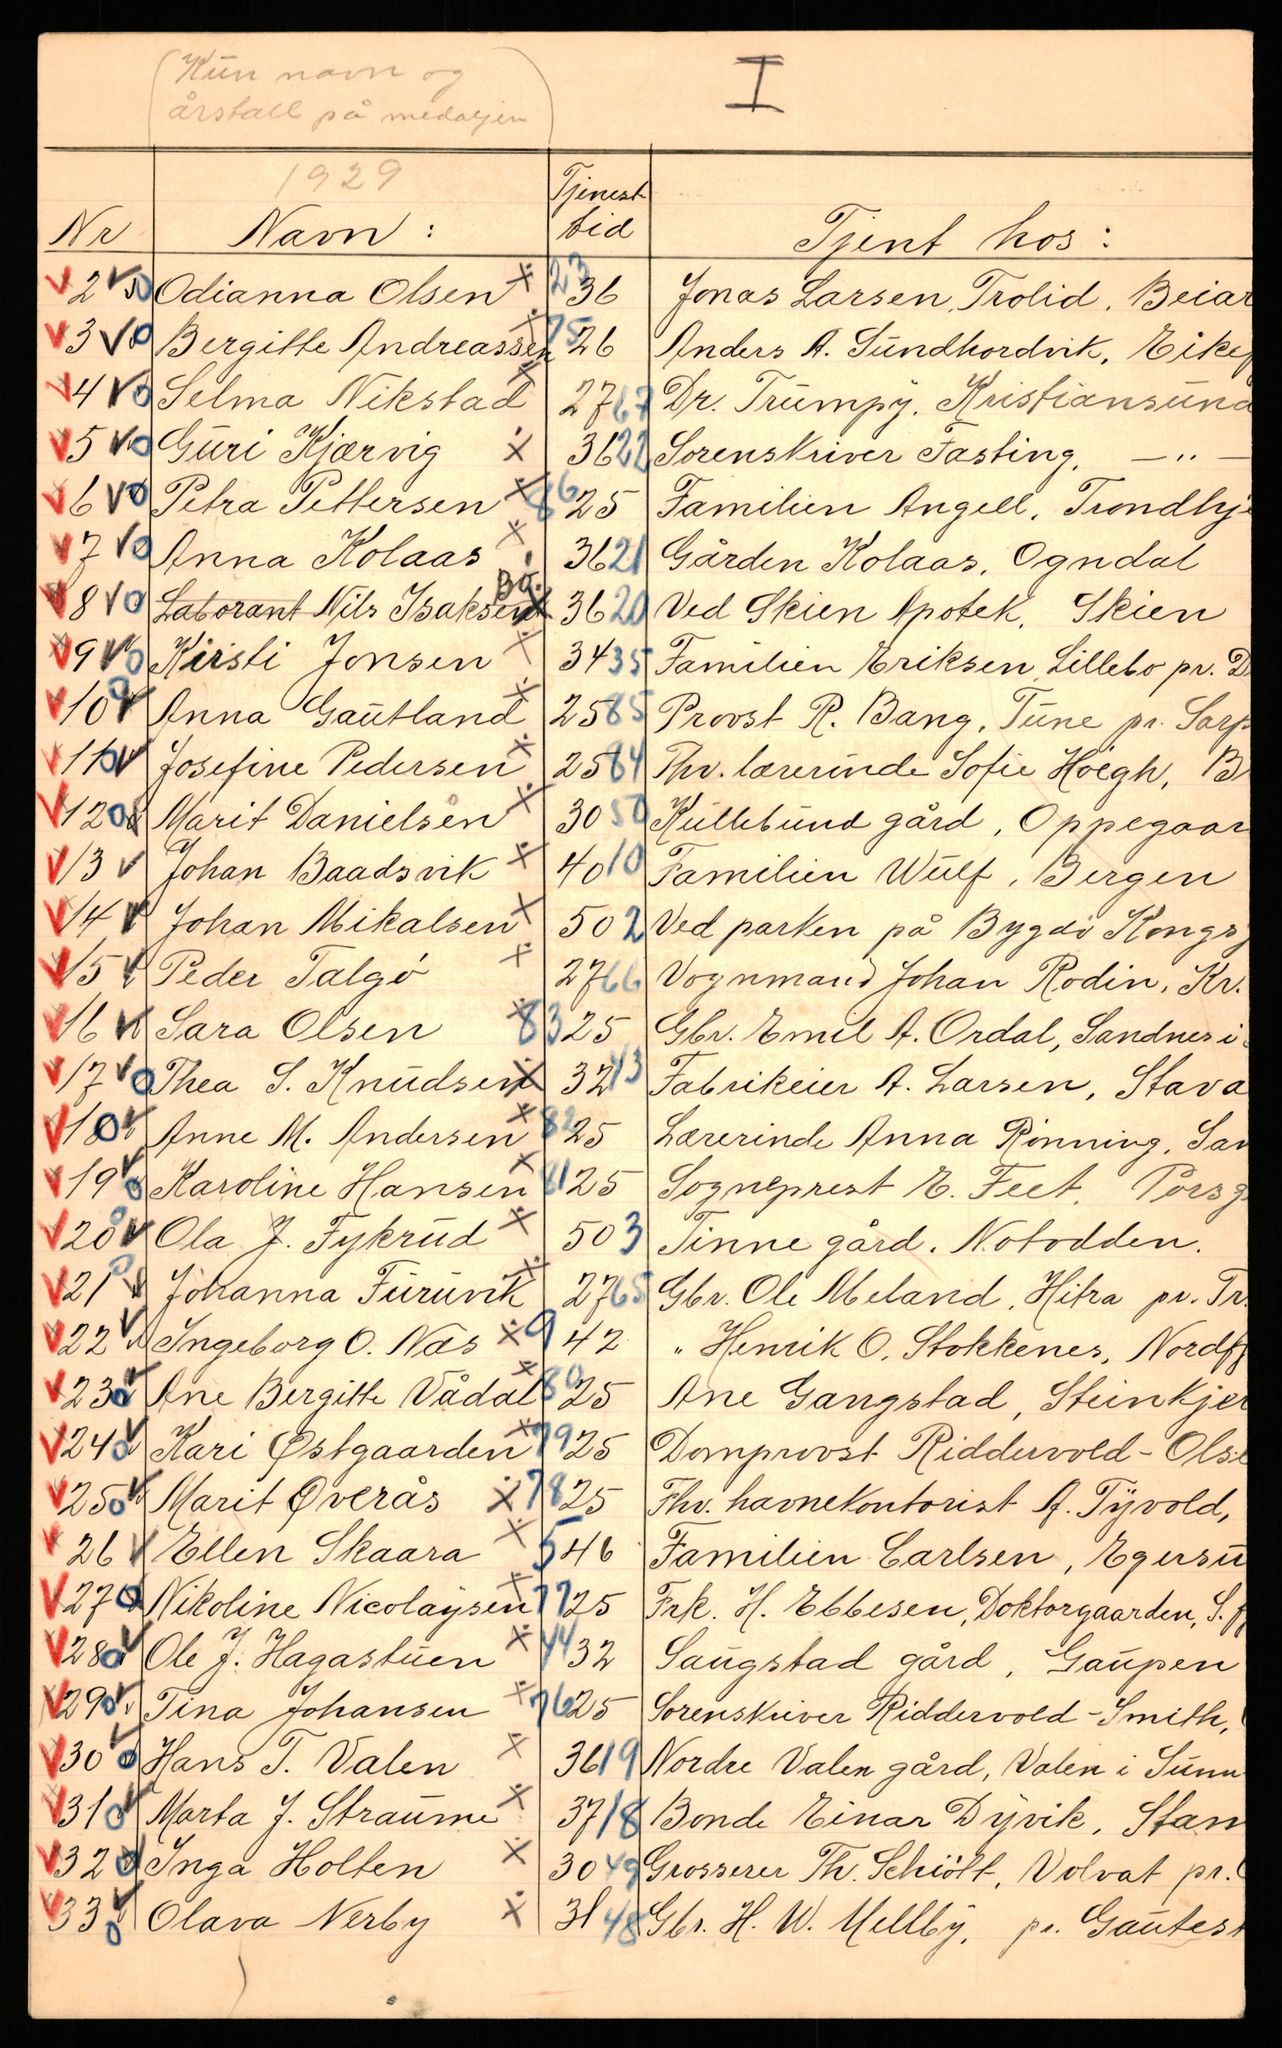 (Kun navn og
årstall på medaljen)
I
1929
Nr Navn : Tjenest tid Tjent hos :
2 Odianna Olsen 23 36 Jonas Larsen, Trolid, Beiar
3 Bergitte Andreassen 75 26 Anders A. Sundhordvik, Eikef
4 Selma Nikstad 27 67 Dr. Trumpy, Kristiansund
5 Guri Kjærvig 36 22 Sorenskriver Fasting, — " —
6 Petra Pettersen 86 25 Familien Angell, Trondhje
7 Anna Kolaas 36 21 Gården Kolaas, Ogndal
8 Laborant Nils Isaksen Bø. 36 20 Ved Skien Apotek, Skien
9 Kirsti Jonsen 34 35 Familien Eriksen, Lillebo pr. D
10 Anna Gautland 25 85 Provst R. Bang, Tune pr. Sarp
11 Josefine Pedersen 25 84 Fhv. lærerinde Sofie Höegh, B
12 Marit Danielsen 30 50 Kullebund gård, Oppegaar
13 Johan Baadsvik 40 10 Familien Wulf, Bergen
14 Johan Mikalsen 50 2 Ved parken på Bygdö Kongsg
15 Peder Talgö 27 66 Vognmand Johan Rodin, Kr.
16 Sara Olsen 83 25 Gbr. Emil A. Ordal, Sandnes i
17 Thea S. Knudsen 32 43 Fabrikeier A. Larsen, Stava
18 Anne M. Andersen 82 25 Lærerinde Anna Rönning, San
19 Karoline Hansen 81 25 Sogneprest E. Feet, Porsg
20 Ola J. Fykrud 50 3 Tinne gård, Notodden.
21 Johanna Furuvik 27 65 Gbr. Ole Meland, Hitra pr. Tr.
22 Ingeborg O. Næs 9 42 " Henrik O. Stokkenes, Nordfj
23 Ane Bergitte Vådal 80 25 Ane Gangstad, Steinkjer
24 Kari Østgaarden 79 25 Domprovst Riddervold-Olse
25 Marit Øverås 78 25 Fhv. havnekontorist A. Tyvold,
26 Ellen Skaara 5 46 Familien Carlsen, Egersu
27 Nikoline Nicolaysen 77 25 Frk. H. Ebbesen, Doktorgaarden, S. f
28 Ole J. Hagastuen 44 32 Saugstad gård, Gaupen
29 Tina Johansen 76 25 Sorenskriver Riddervold-Smith,
30 Hans T. Valen 36 19 Nordre Valen gård, Valen i Sunn
31 Marta J. Straume 37 18 Bonde Einar Dyvik, Stam
32 Inga Holten 30 49 Grosserer Th. Schiött, Volvat pr.
33 Olava Nerby 31 48 Gbr. H. W. Mellby, pr. Gautest